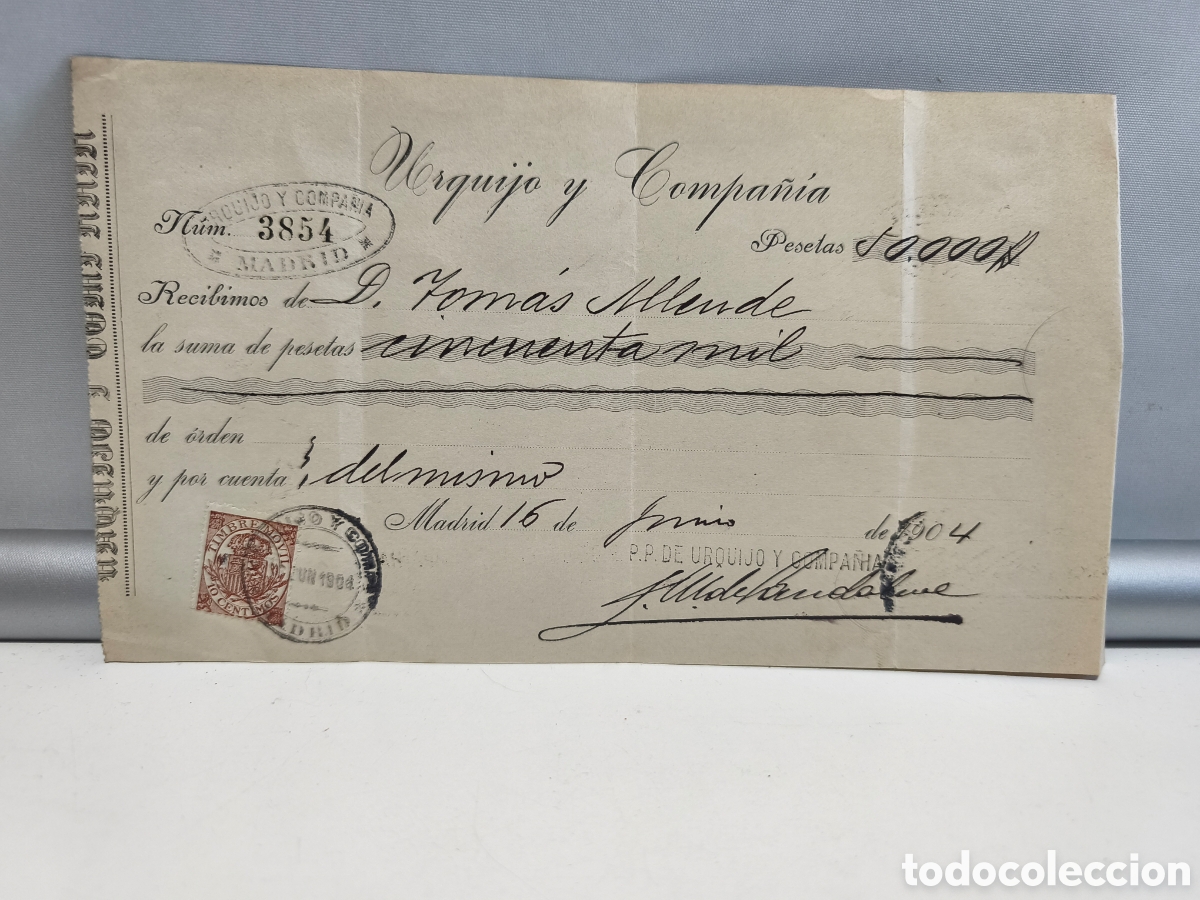 Urquijo y Compañía
URQUIJO Y COMPAÑIA
Núm. 3854
MADRID
Pesetas 50.000
Recibimos de D. Tomás Allende
la suma de pesetas cincuenta mil
de órden
y por cuenta del mismo
Madrid 16 de Junio de 1904
P.P. DE URQUIJO Y COMPAÑIA
TIMBRE MOVIL
10 CENTIMOS
JUN 1904
MADRID
URQUIJO Y COMPAÑIA
todocoleccion